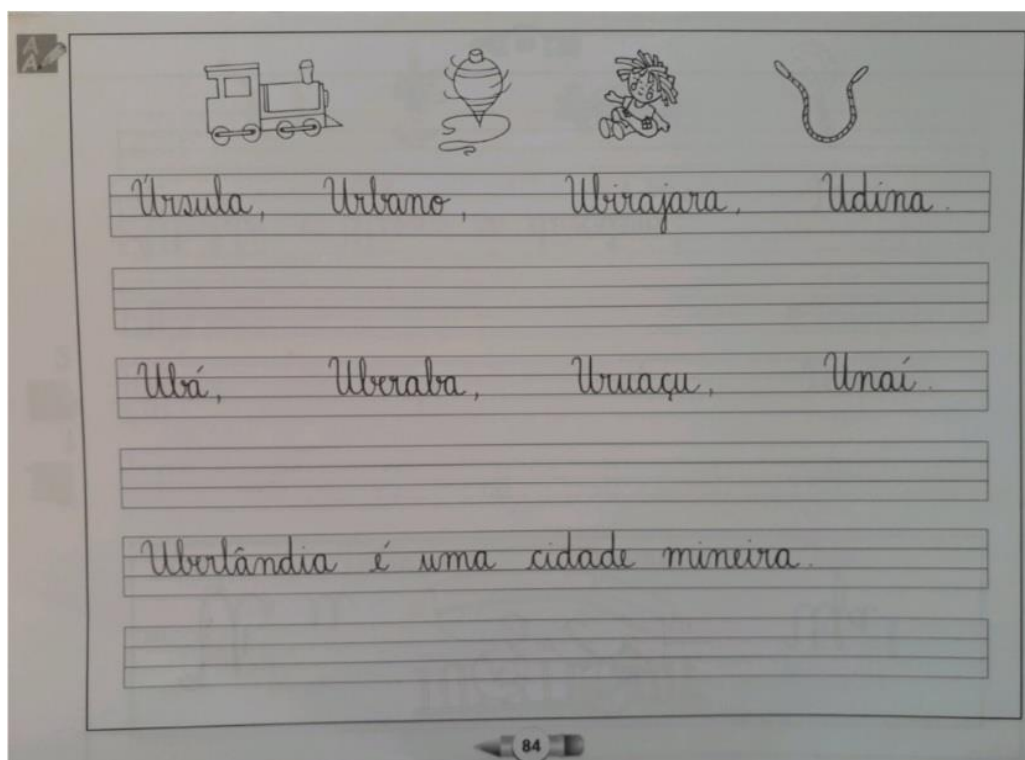 A
A
Úrsula, Urbano, Ubirajara, Udina.
Ubá, Uberaba, Uruaçu, Unaí.
Uberlândia é uma cidade mineira.
84